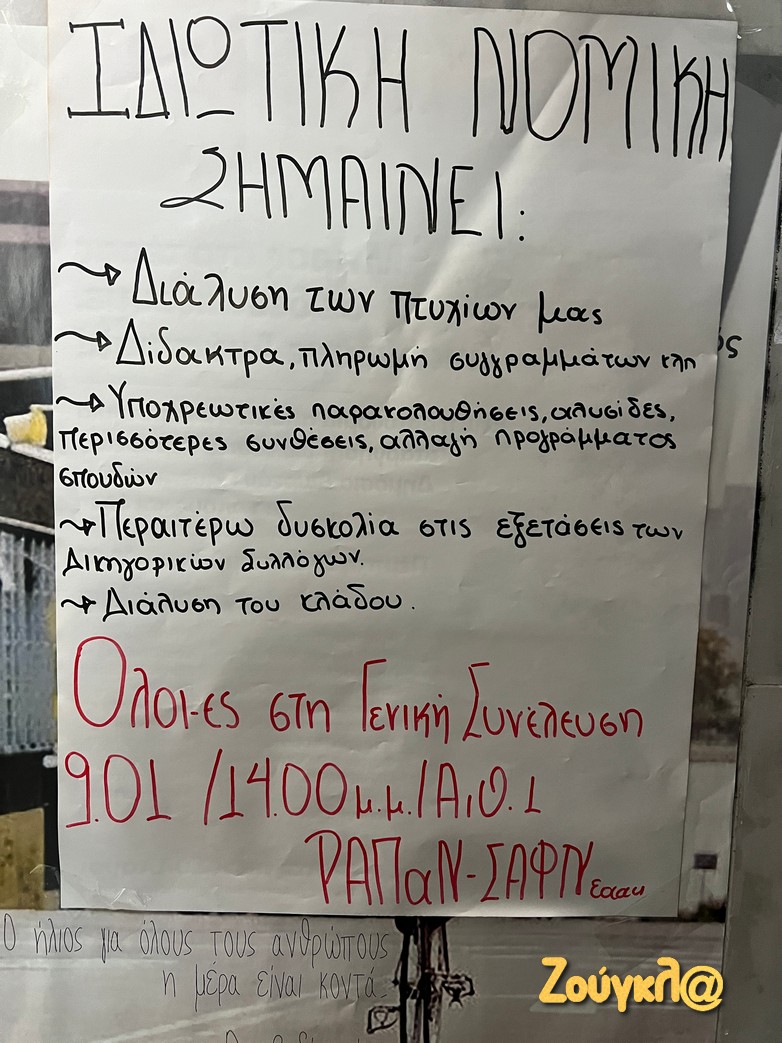 ΙΔΙΩΤΙΚΗ ΝΟΜΙΚΗ
ΣΗΜΑΙΝΕΙ:
Διάλυση των πτυχίων μας
Δίδακτρα, πληρωμή συγγραμμάτων κλπ
Υποχρεωτικές παρακολουθήσεις, αλυσίδες,
περισσότερες συνθέσεις, αλλαγή προγράμματος
σπουδών
Περαιτέρω δυσκολία στις εξετάσεις των
Δικηγορικών Συλλόγων.
Διάλυση του κλάδου.
Όλοι-ες στη Γενική Συνέλευση
9.01 / 14.00 μ.μ. / Α.Θ. 1
ΡΑΠαΝ-ΣΑΦΝ εαακ
ός
Ο ήλιος για όλους τους ανθρώπους
η μέρα είναι κοντά
Ζούγκλ@